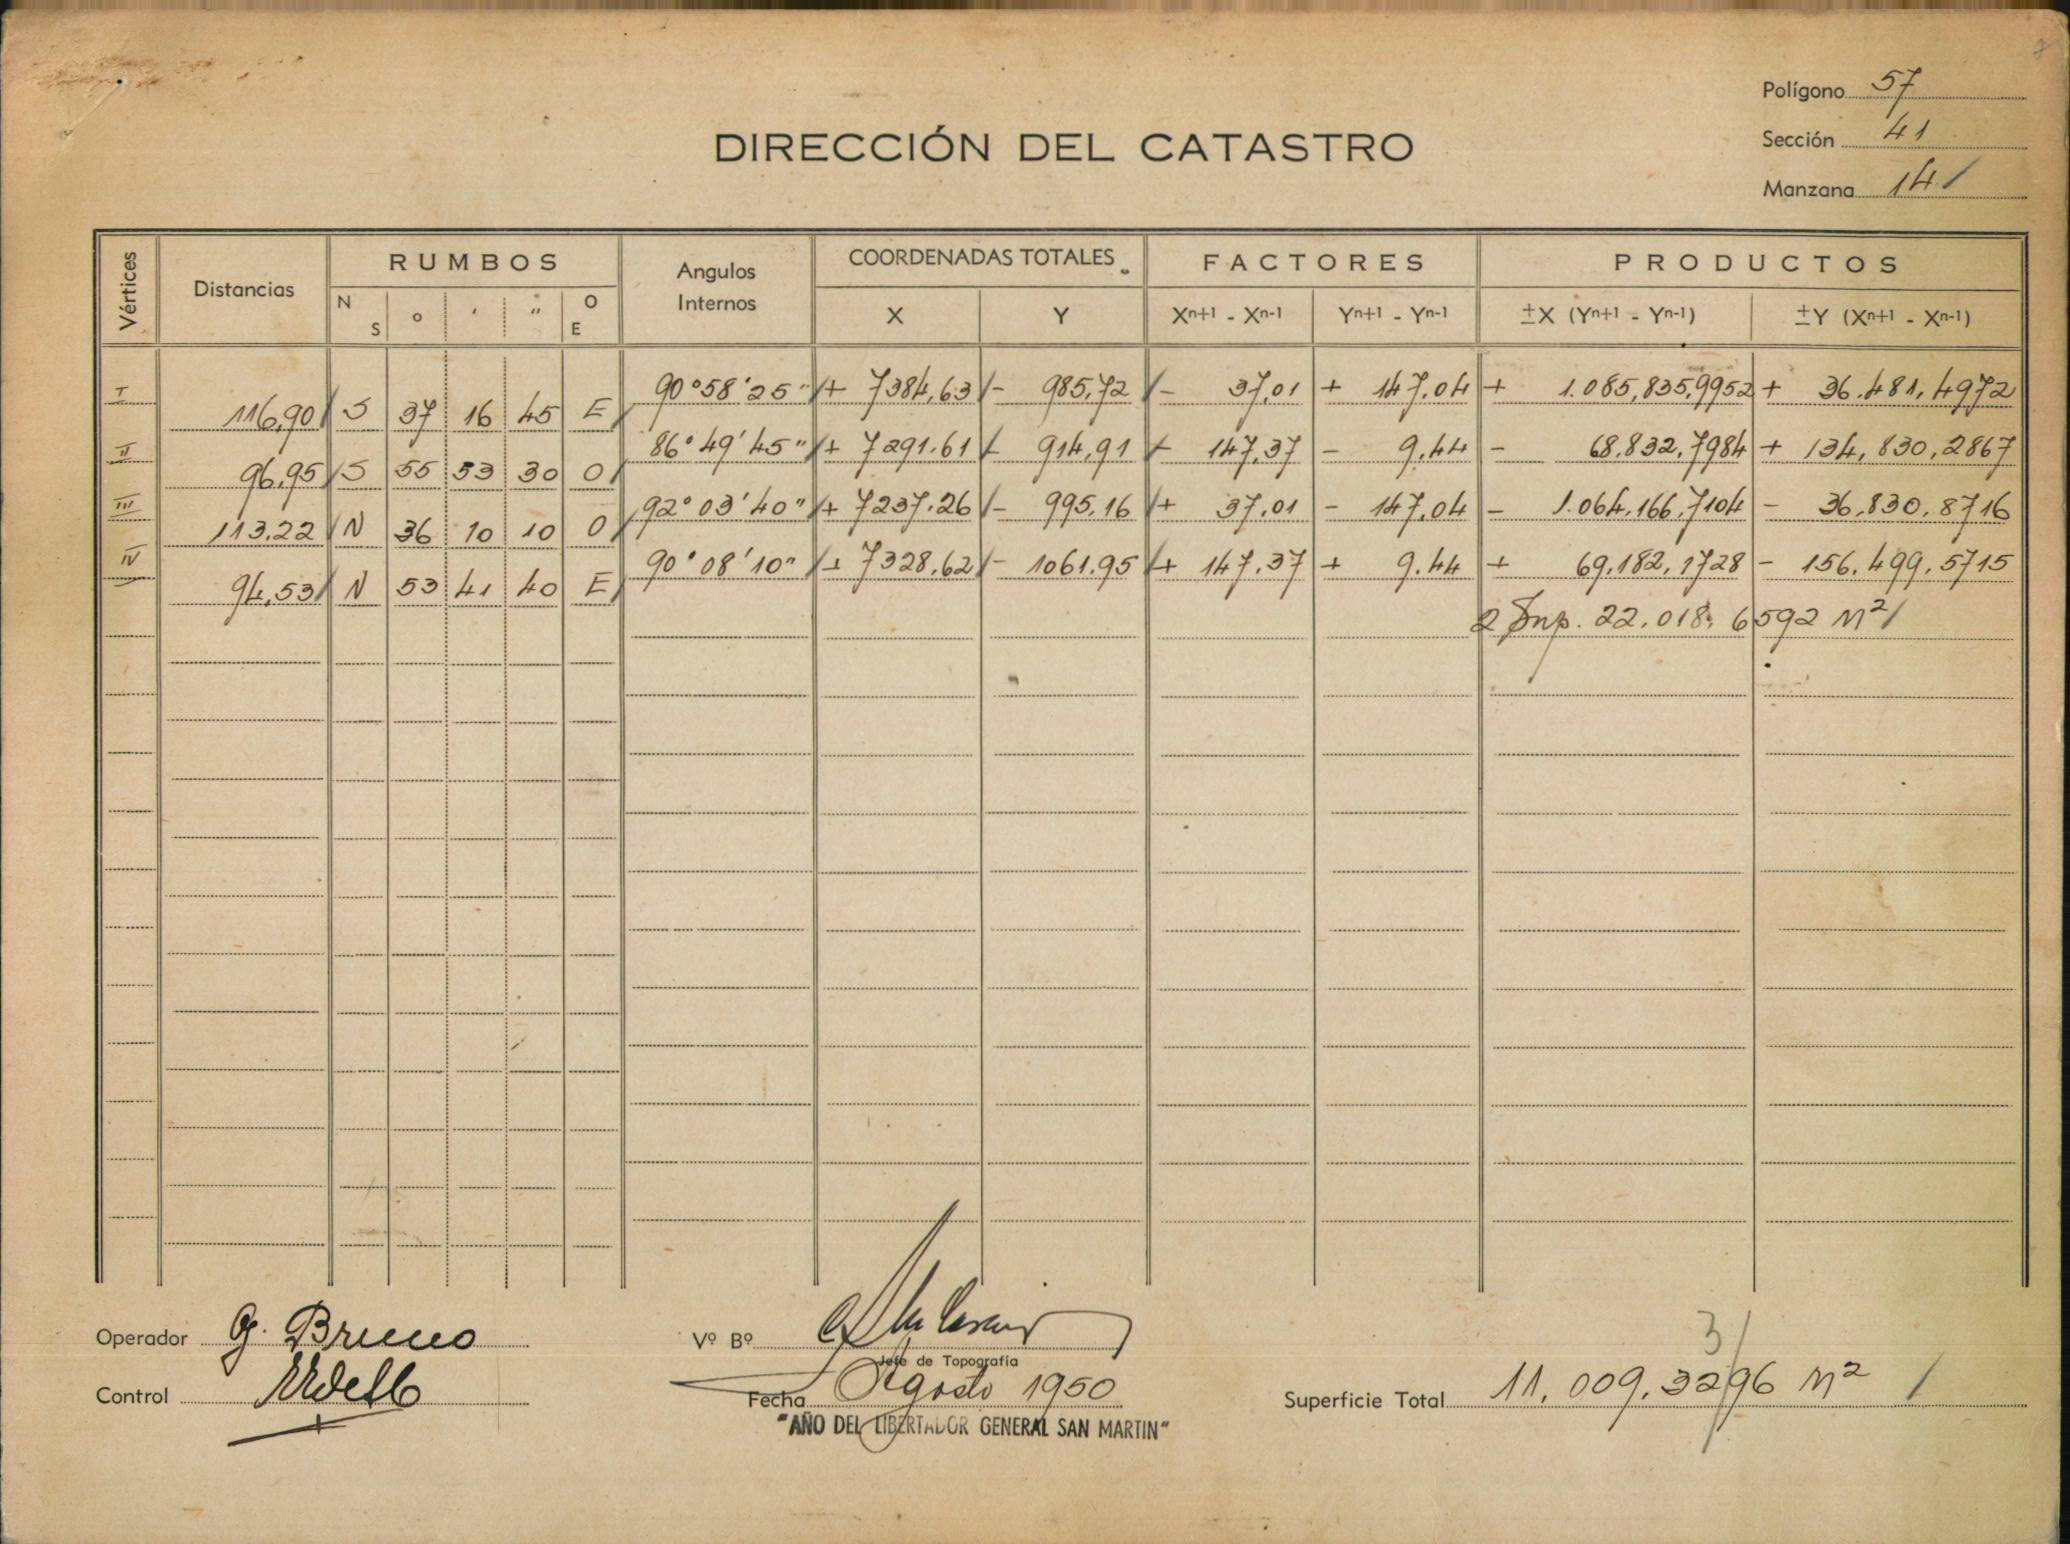 Polígono 57
DIRECCIÓN DEL CATASTRO
Sección 41
Manzana 14
Vértices Distancias RUMBOS Angulos Internos COORDENADAS TOTALES FACTORES PRODUCTOS
N S ° ' " O E X Y Xn+1 - Xn-1 Yn+1 - Yn-1 ±X (Yn+1 - Yn-1) ±Y (Xn+1 - Xn-1)
I 90°58'25" + 7384,63 - 985,72 - 37,01 + 147,04 + 1.085,835,9952 + 36.481,4972
116,90 S 37 16 45 E
II 86°49'45" + 7291.61 - 914,91 - 147,37 - 9,44 - 68.832,7984 + 134,830,2867
96,95 S 55 53 30 O
III 92°03'40" + 7237.26 - 995,16 + 37,01 - 147,04 - 1.064,166,7104 - 36,830,8716
113.22 N 36 10 10 O
IV 90°08'10" + 7328,62 - 1061.95 + 147,37 + 9.44 + 69,182,1728 - 156.499,5715
94,53 N 53 41 40 E
2 Sup. 22.018,6592 M²
Operador G. Bruno
Vº Bº
Jefe de Topografía
3
Control
Fecha Agosto 1950
Superficie Total 11.009,3296 M²
"AÑO DEL LIBERTADOR GENERAL SAN MARTIN"